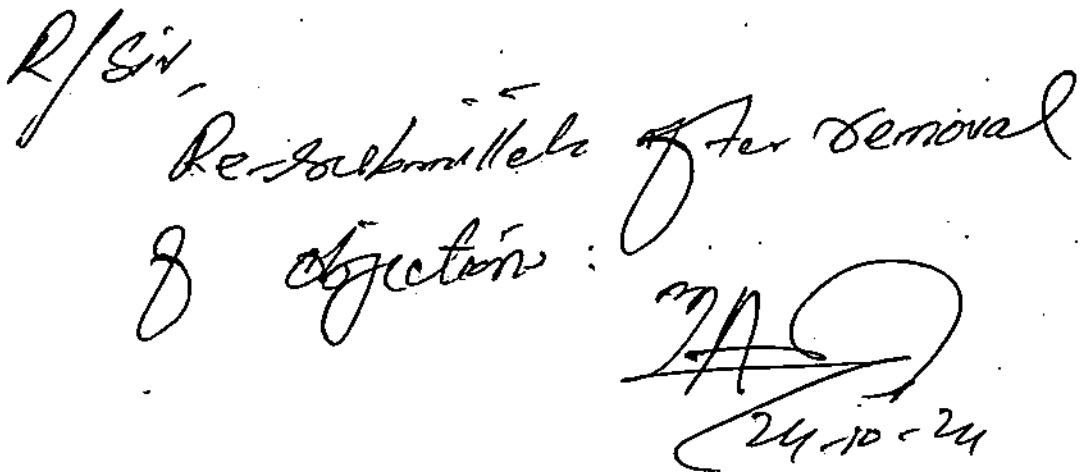 R/Sir,
Re-submitted after removal
of objection:
24-10-24